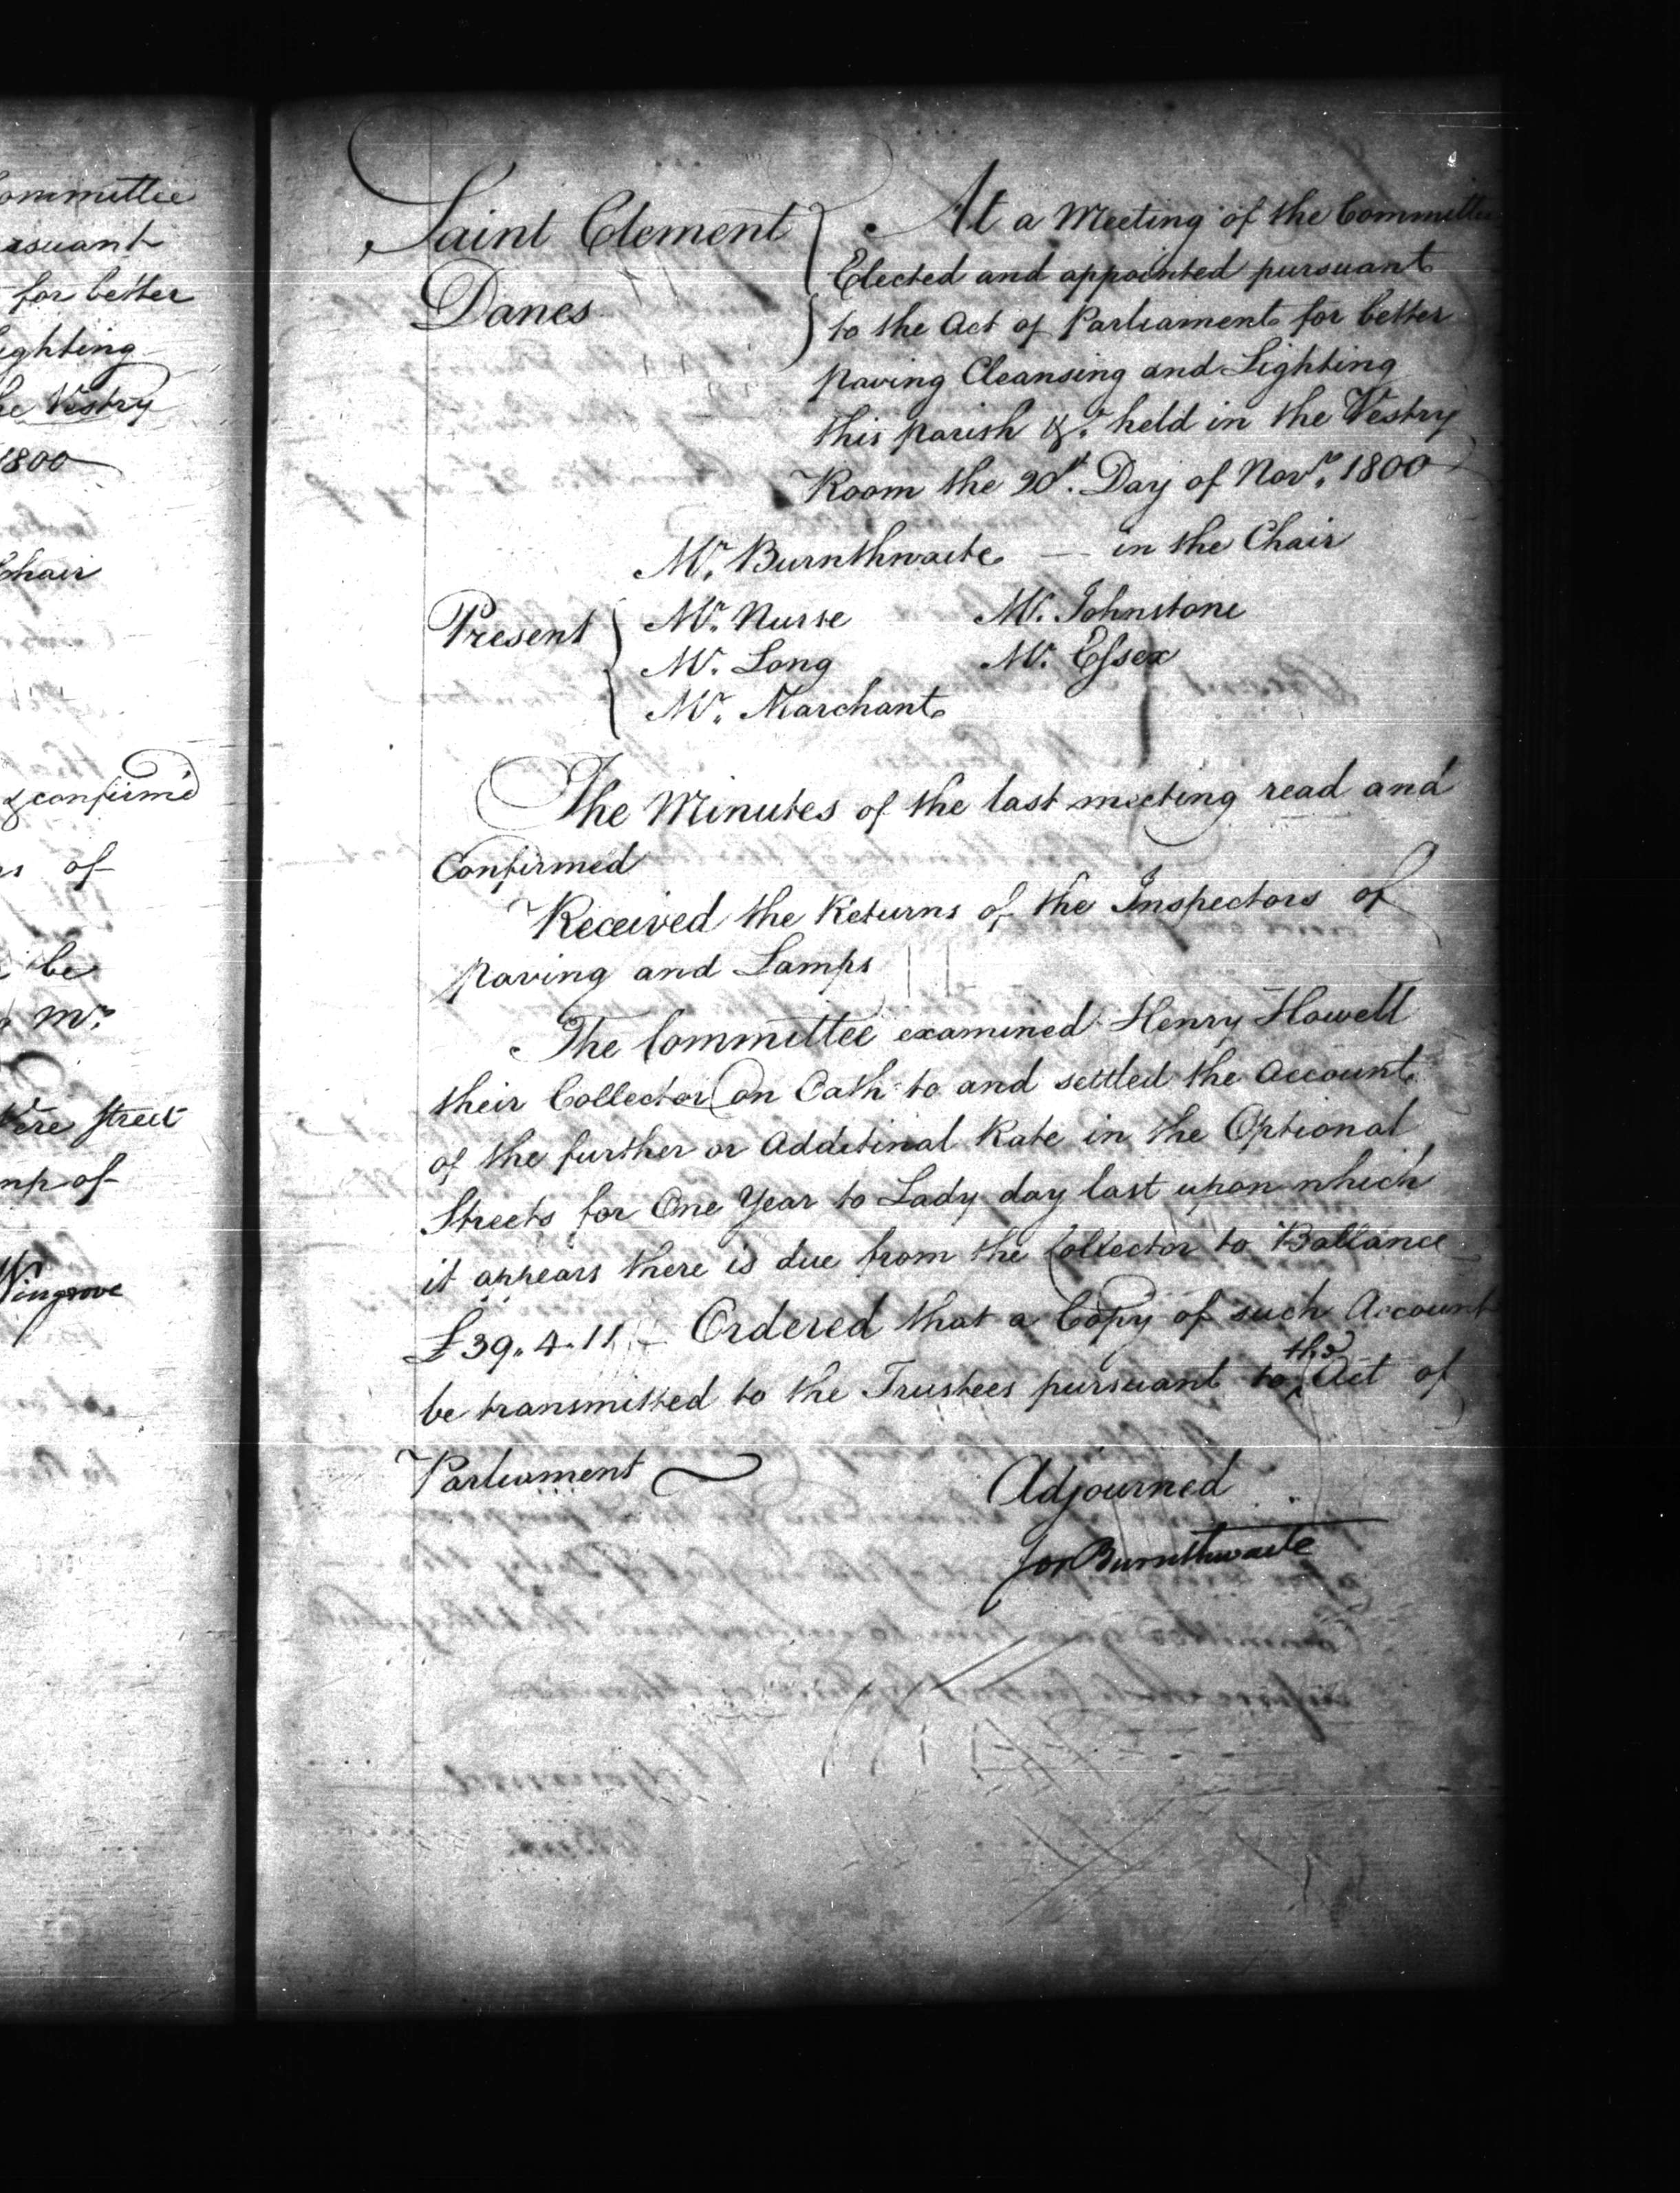 ommittee
rsuant
for better
ighting
he Vestry
1800
Chair
& confirmd
of
be
Mr.
Vere Street
of
Wingrove
Saint Clement
Danes
At a Meeting of the Committee
Elected and appointed pursuant
to the Act of Parliament for better
paving Cleansing and Lighting
this parish &c. held in the Vestry
Room the Day of Novr. 1800
Mr. Burnthwaite — in the Chair
Present
Mr. Nurse Mr. Johnstone
Mr. Long Mr. Essex
Mr. Marchant
The Minutes of the last meeting read and
Confirmed
Received the Returns of the Inspectors of
paving and Lamps
The Committee examined Henry Howell
their Collector on Oath to and settled the Account
of the further or Additinal Rate in the Optional
Streets for One Year to Lady day last upon which
it appears there is due from the Collector to Ballance
£39.4.11 – Ordered that a Copy of such Account
be transmitted to the Trustees pursuant to the Act of
Parliament
Adjourned
Jon Burnthwaite